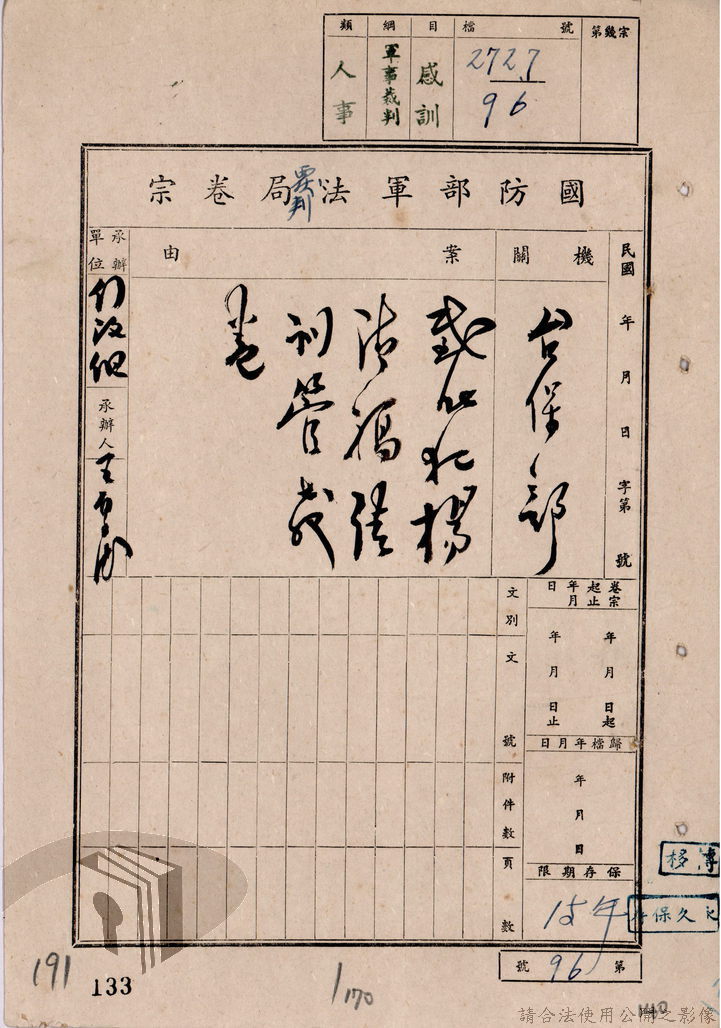 類 綱 目 檔 號 第幾宗
人事 軍事裁判 感訓 2727
96
國防部軍法局卷宗
覆判
民國 年 月 日 字第 號
機關
台保部
案由
戡亂犯楊
清福請
訓管裁
卷
承辦單位
承辦人
卷宗起止年月日
年 月 日起
年 月 日止
歸檔年月日
年 月 日
保存期限
15年
文別
文號
附件數
頁數
第 96 號
移簿
永久保存
191
133
1/170
請合法使用公開之影像